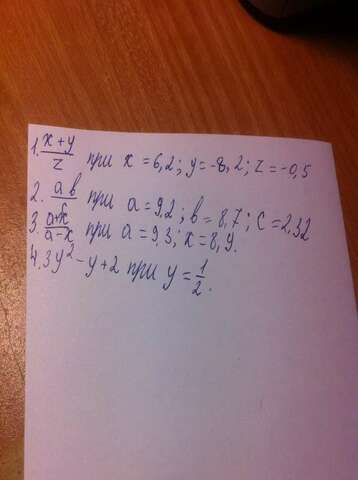 1. x+y/z при x = 6,2; y = -8,2; z = -0,5
2. ab/c при a = 9,2; b = 8,7; c = 2,32
3. a+x/a-x при a = 9,3; x = 8,9.
4. 3y² - y + 2 при y = 1/2.